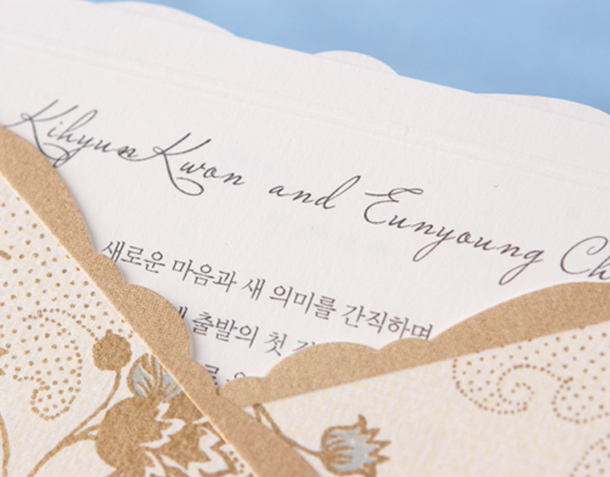 Kihyun Kwon and Eunyoung Ch
새로운 마음과 새 의미를 간직하며
새 출발의 첫